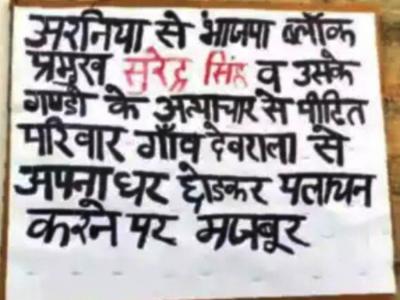 अरनिया से भाजपा ब्लॉक
प्रमुख सुरेन्द्र सिंह व उसके
गुण्डों के अत्याचार से पीडित
परिवार गाँव देवराला से
अपना घर छोडकर पलायन
करने पर मजबूर